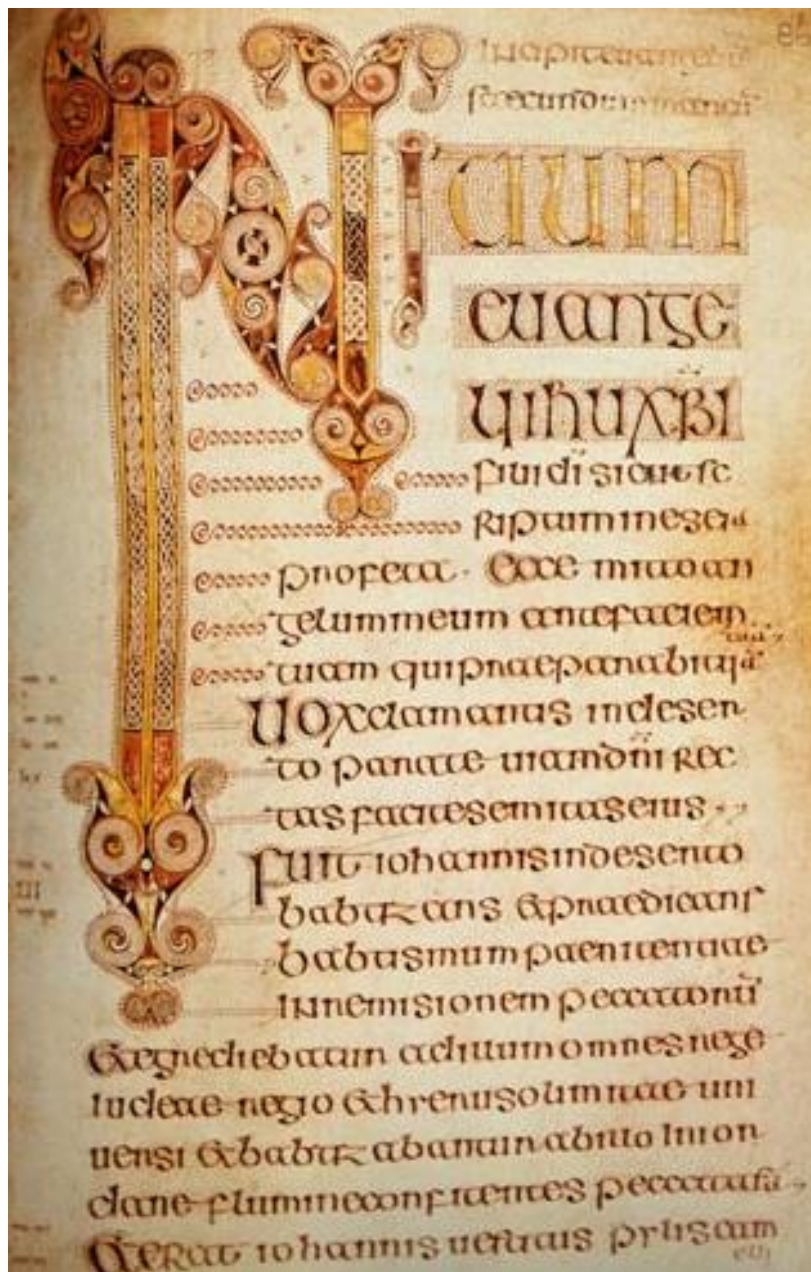 INITIUM
euange
lii ihu xpi
filii di sicut sc
riptum in eseia
profeta · Ecce mitto an
gelum meum ante faciem
tuam qui praeparabit uia
Uox clamantis in deser
to parate uiam dni rec
tas facite semitas eius
Fuit iohannis in deserto
babtizans & praedicans
babtismum paenitentiae
in remisionem peccatoru
& egrediebatur ad illum omnes
iudeae regio & uni
uersi & babtizabantur ab illo in ior
dane flumine confitentes peccata sua
& erat iohannis uestitus pylis cam